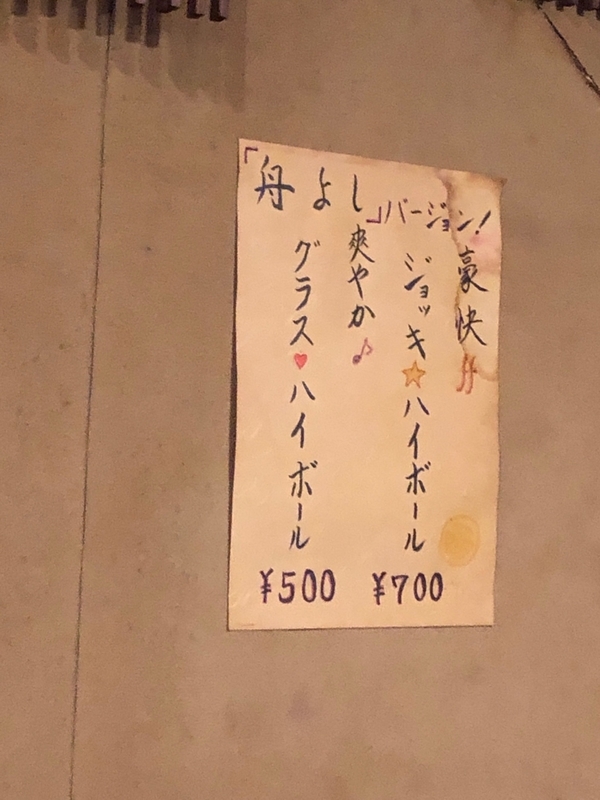 「舟よし」バージョン!
豪快!!
ジョッキ☆ハイボール
¥700
爽やか♪
グラス♥ハイボール
¥500